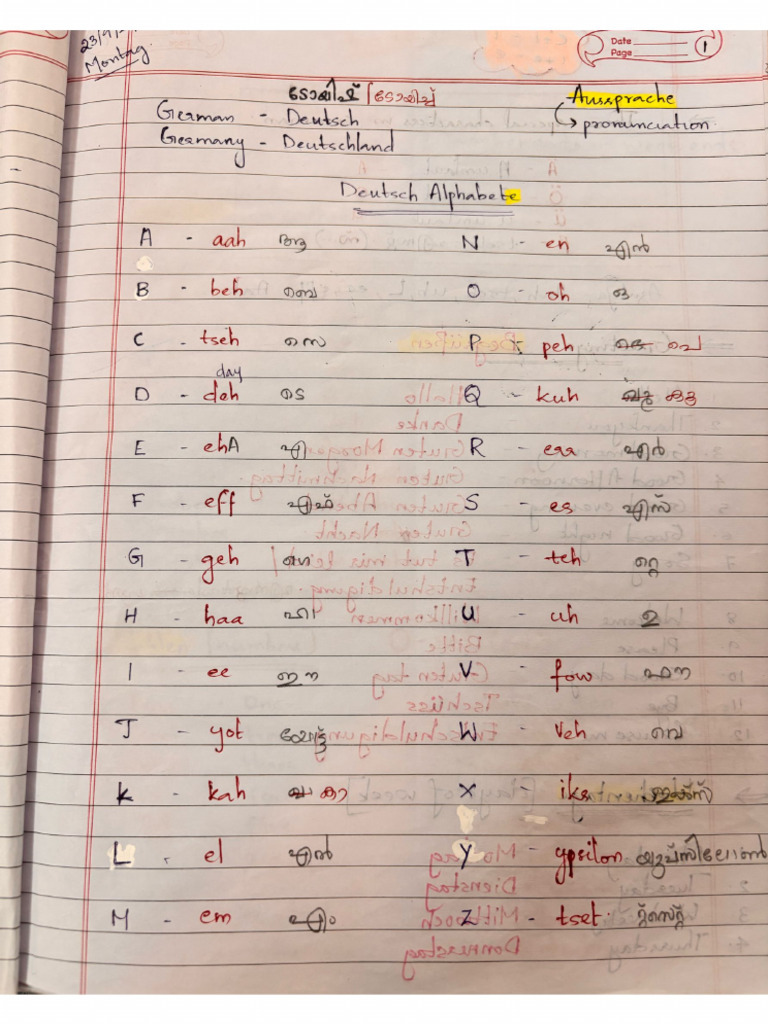 Montag
Date
Page 1
ഡോയിച്ച് / ഡോയിച്ച്
Aussprache
German - Deutsch
↳ pronunciation
Germany - Deutschland
Deutsch Alphabete
A - aah ആ N - en എൻ
B - beh ബെ O - oh ഒ
C - tseh സെ P - peh പെ
day
D - deh ഡെ Q - kuh കൂ
E - ehA എ R - err
F - eff എഫ് S - es എസ്
G - geh ഗെ T - teh റ്റെ
H - haa ഹാ U - uh ഉ
I - ee ഈ V - fow ഫൗ
J - yot യോട്ട് W - veh വെ
K - kah കാ X - iks
L - el എൽ Y - ypsilon
M - em എം Z - tset